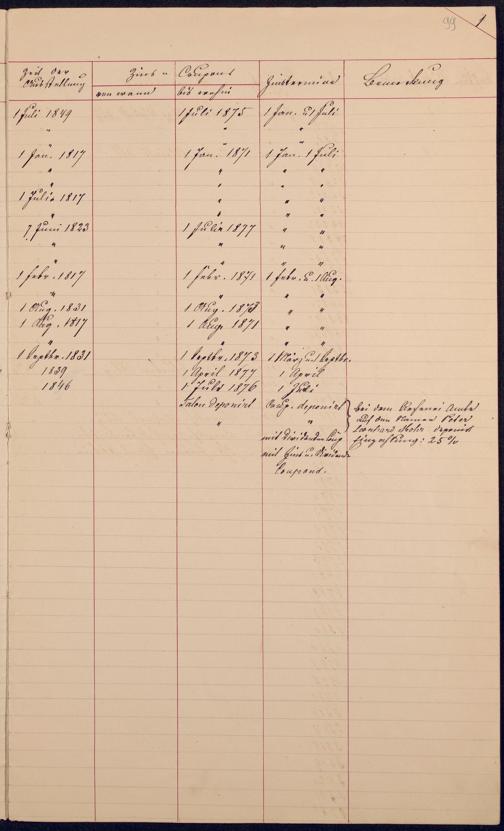 99 1
Zeit der Ausstellung Zins u. Coupons Zinstermine Bemerkung
von wann bis wohin
1 Juli 1849 1 Juli 1875 1 Jan. u. 1 Juli
" " " "
1 Jan. 1817 1 Jan. 1871 1 Jan. 1 Juli
" " " "
" " " "
1 Julia 1817 " " "
" " " "
7 Juni 1823 1 Julia 1877 " "
" " " "
" " " "
1 Febr. 1817 1 Febr. 1871 1 Febr. u. 1 Aug.
" " " "
1 Aug. 1831 1 Aug. 1873 " "
1 Aug. 1817 1 Aug. 1871 " "
" " " "
1 Septbr. 1831 1 Septbr. 1873 1 März und Septbr.
1839 1 April 1877 1 April
1846 1 Juli 1876 1 Juli
Talon deponirt Coup. deponirt bei dem Amte
" " auf den Namen Peter
mit Dividenden Coup deponirt
mit Zins u. Dividende Einzahlung: 25 %
Coupons.